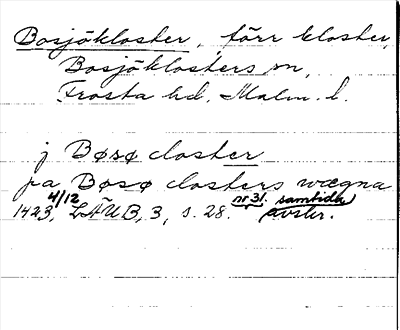 Bosjökloster, förr kloster,
Bosjöklosters sn,
Frosta hd, Malm. l.
j Bøsø closter
pa Bøsø closters wægna
1423 4/12, LÄUB, 3, s. 28. nr 31. samtida avskr.